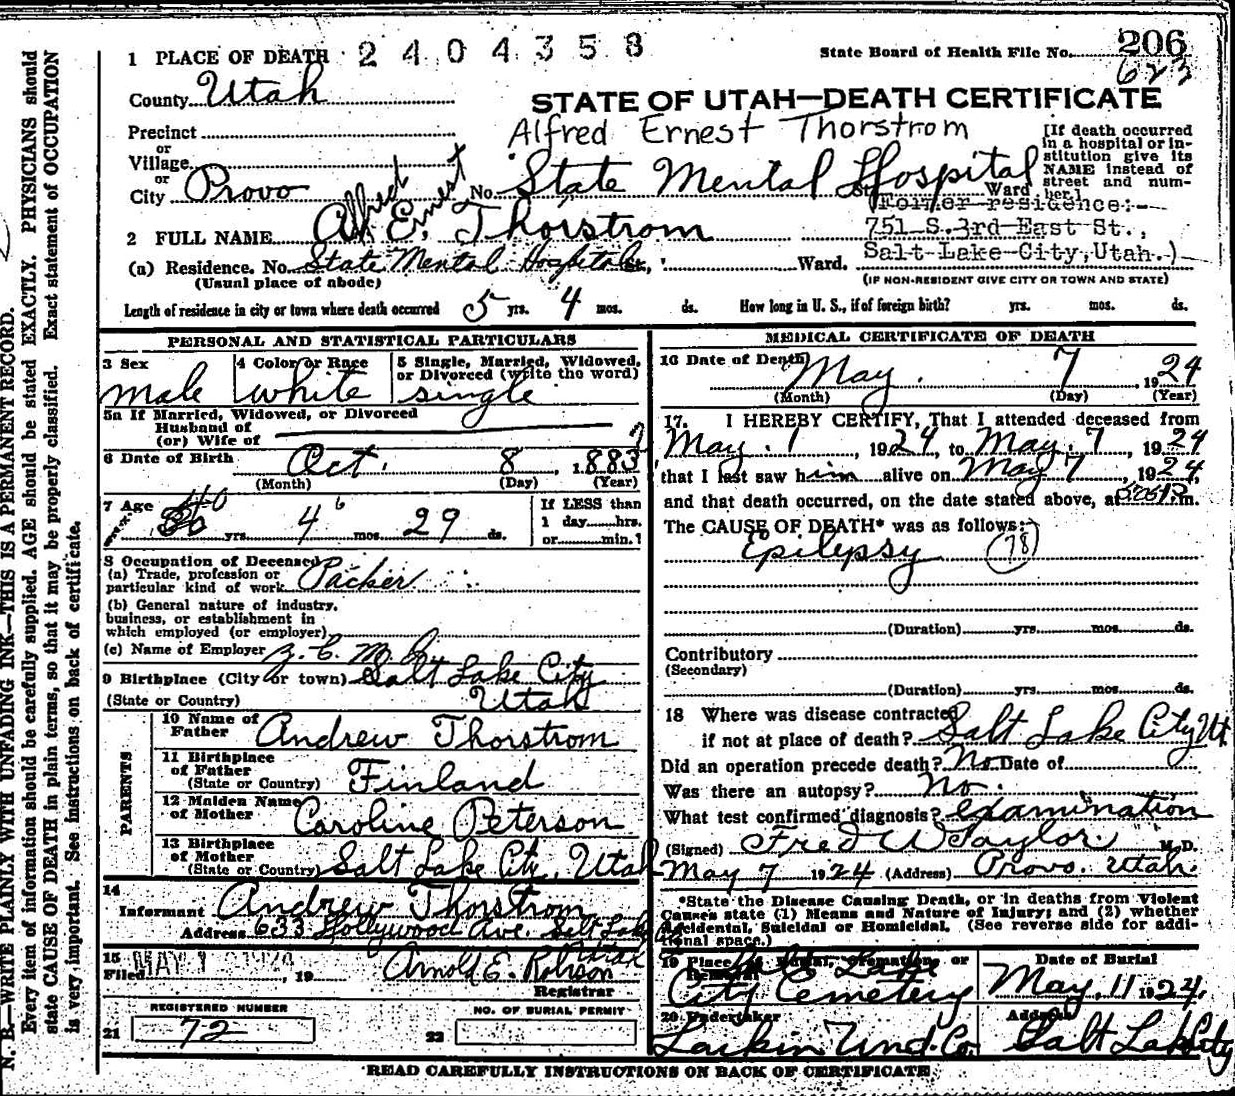 1 PLACE OF DEATH 2404358
State Board of Health File No. 206
623
County Utah
STATE OF UTAH—DEATH CERTIFICATE
Precinct
Alfred Ernest Thorstrom
or
Village
or
City Provo No. State Mental Hospital St. Ward
[If death occurred in a hospital or institution give its NAME instead of street and number.]
Alfred Ernest
2 FULL NAME Alf E. Thorstrom
(Former residence:-
751 S. 3rd East St.,
Salt Lake City, Utah.)
(a) Residence. No. State Mental Hospital St., Ward.
(Usual place of abode)
(IF NON-RESIDENT GIVE CITY OR TOWN AND STATE)
Length of residence in city or town where death occurred 5 yrs. 4 mos. ds. How long in U. S., if of foreign birth? yrs. mos. ds.
PERSONAL AND STATISTICAL PARTICULARS
3 Sex male
4 Color or Race white
5 Single, Married, Widowed, or Divorced (write the word) single
5a If Married, Widowed, or Divorced
Husband of
(or) Wife of
6 Date of Birth Oct. 8, 1883
(Month) (Day) (Year)
7 Age 40 yrs. 4 6 mos. 29 ds.
If LESS than
1 day hrs.
or min.?
8 Occupation of Deceased
(a) Trade, profession or
particular kind of work Packer
(b) General nature of industry,
business, or establishment in
which employed (or employer)
(c) Name of Employer Z. C. M. I.
9 Birthplace (City or town) Salt Lake City
(State or Country) Utah
PARENTS
10 Name of
Father Andrew Thorstrom
11 Birthplace
of Father
(State or Country) Finland
12 Maiden Name
of Mother Caroline Peterson
13 Birthplace
of Mother
(State or Country) Salt Lake City, Utah
14
Informant Andrew Thorstrom
Address 633 Hollywood Ave. Salt Lake
Utah
15
Filed MAY 1924, 19 Arnold E. Robison
Registrar
REGISTERED NUMBER
21 72
NO. OF BURIAL PERMIT
22
MEDICAL CERTIFICATE OF DEATH
16 Date of Death May 7, 1924
(Month) (Day) (Year)
17. I HEREBY CERTIFY, That I attended deceased from
May 1, 1924, to May 7, 1924
that I last saw him alive on May 7, 1924,
and that death occurred, on the date stated above, at P.m.
The CAUSE OF DEATH* was as follows:
Epilepsy (78)
(Duration) yrs. mos. ds.
Contributory
(Secondary)
(Duration) yrs. mos. ds.
18 Where was disease contracted
if not at place of death? Salt Lake City Ut.
Did an operation precede death? No Date of
Was there an autopsy? No.
What test confirmed diagnosis? examination
(Signed) Fred W Taylor M. D.
May 7 1924 (Address) Provo, Utah.
*State the Disease Causing Death, or in deaths from Violent
Causes state (1) Means and Nature of Injury; and (2) whether
Accidental, Suicidal or Homicidal. (See reverse side for additional space.)
19 Place of Burial, Cremation, or
Removal Salt Lake
City Cemetery
Date of Burial
May, 11 1924.
20 Undertaker
Larkin Und. Co.
Address
Salt Lake City
READ CAREFULLY INSTRUCTIONS ON BACK OF CERTIFICATE
N. B.—WRITE PLAINLY WITH UNFADING INK—THIS IS A PERMANENT RECORD.
Every item of information should be carefully supplied. AGE should be stated EXACTLY. PHYSICIANS should
state CAUSE OF DEATH in plain terms, so that it may be properly classified. Exact statement of OCCUPATION
is very important. See instructions on back of certificate.